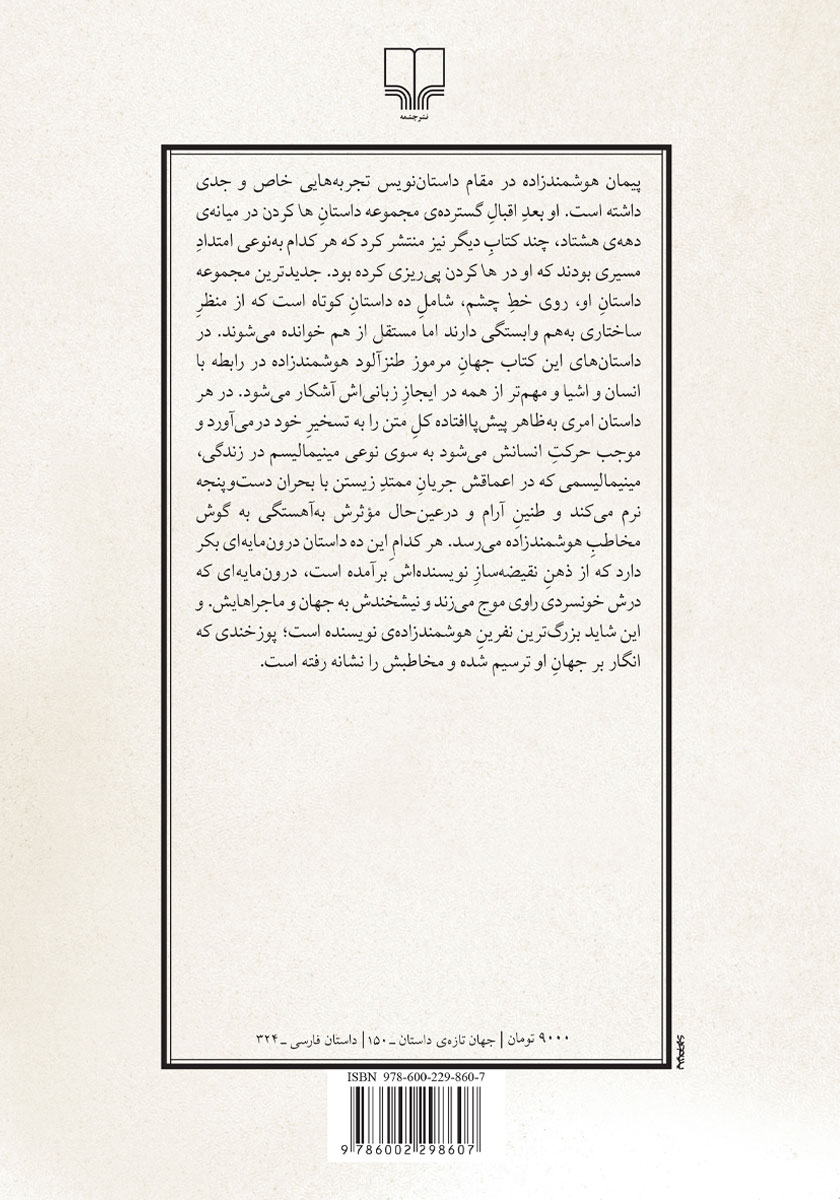 نشرچشمه
پیمان هوشمندزاده در مقام داستان‌نویس تجربه‌هایی خاص و جدی
داشته است. او بعدِ اقبالِ گسترده‌ی مجموعه داستانِ ها کردن در میانه‌ی
دهه‌ی هشتاد، چند کتابِ دیگر نیز منتشر کرد که هر کدام به‌نوعی امتدادِ
مسیری بودند که او در ها کردن پی‌ریزی کرده بود. جدیدترین مجموعه
داستانِ او، روی خطِ چشم، شاملِ ده داستانِ کوتاه است که از منظرِ
ساختاری به‌هم وابستگی دارند اما مستقل از هم خوانده می‌شوند. در
داستان‌های این کتاب جهانِ مرموز طنزآلود هوشمندزاده در رابطه با
انسان و اشیا و مهم‌تر از همه در ایجازِ زبانی‌اش آشکار می‌شود. در هر
داستان امری به‌ظاهر پیش‌پاافتاده کلِ متن را به تسخیرِ خود درمی‌آورد و
موجب حرکتِ انسانش می‌شود به سوی نوعی مینیمالیسم در زندگی،
مینیمالیسمی که در اعماقش جریانِ ممتدِ زیستن با بحران دست‌وپنجه
نرم می‌کند و طنینِ آرام و درعین‌حال مؤثرش به‌آهستگی به گوش
مخاطبِ هوشمندزاده می‌رسد. هر کدامِ این ده داستان درون‌مایه‌ای بکر
دارد که از ذهنِ نقیضه‌سازِ نویسنده‌اش برآمده است، درون‌مایه‌ای که
درش خونسردی راوی موج می‌زند و نیشخندش به جهان و ماجراهایش. و
این شاید بزرگ‌ترین نفرینِ هوشمندزاده‌ی نویسنده است؛ پوزخندی که
انگار بر جهانِ او ترسیم شده و مخاطبش را نشانه رفته است.
۹۰۰۰ تومان | جهان تازه‌ی داستان ـ ۱۵۰ | داستان فارسی ـ ۳۲۴
ISBN 978-600-229-860-7
9 786002 298607